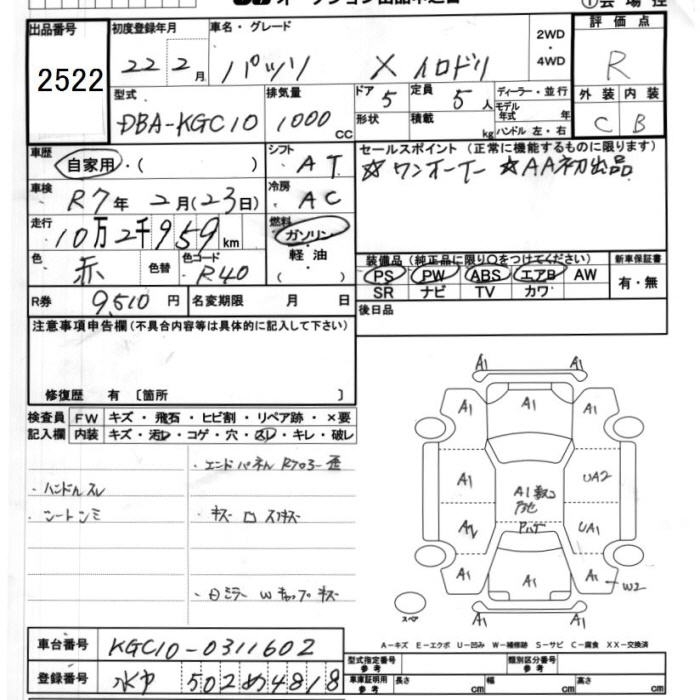 出品番号
2522
初度登録年月
22 2月
車名・グレード
パッソ X イロドリ
2WD
・
4WD
評価点
R
外装 内装
C B
型式
DBA-KGC10
排気量
1000 CC
ドア 5
形状
定員 5 人
積載 kg
ディーラー・並行
モデル年式 年
ハンドル 左・右
車歴
自家用・( )
シフト
AT
セールスポイント (正常に機能するものに限ります)
☆ワンオーナー ☆AA初出品
車検
R7年 2月(23日)
冷房
AC
走行
10万2千959km
燃料
ガソリン
・
軽油
( )
色
赤 色替
色コード
R40
装備品 (純正品に限り○をつけてください)
PS PW ABS エアB AW
SR ナビ TV カワ
新車保証書
有・無
R券 9,510円
名変期限 月 日
後日品
注意事項申告欄(不具合内容等は具体的に記入して下さい)
修復歴 有 〔箇所 〕
検査員
記入欄
FW キズ・飛石・ヒビ割・リペア跡・×要
内装 キズ・汚レ・コゲ・穴・スレ・キレ・破レ
・エンドパネル R703一歪
・ハンドルスレ
・シートシミ
・キズ
・白ミラーWキャップキズ
A1 A1
A1 A1 A1
A1 UA2
A1
A2 UA1
A1 A1 A1 W2
A1 A1
スペア
A-キズ E-エクボ U-凹み W-補修跡 S-サビ C-腐食 XX-交換済
車台番号 KGC10-0311602
登録番号 水戸 502 め 4818
型式指定番号 参考
類別区分番号 参考
車庫証明用 参考 長さ cm 幅 cm 高さ cm